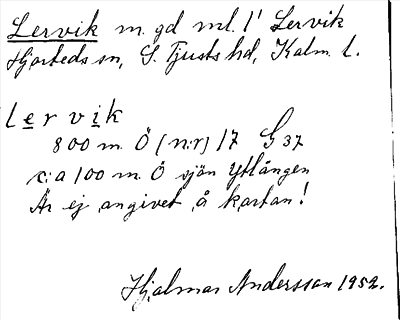 Lervik m. gd ml. 1' Lervik
Hjorteds sn, S. Tjusts hd, Kalm. l.
Lervik
800 m. Ö (n:r) 17 G 37
c:a 100 m. Ö sjön Ytlången
Är ej angivet å kartan!
Hjalmar Andersson 1952.